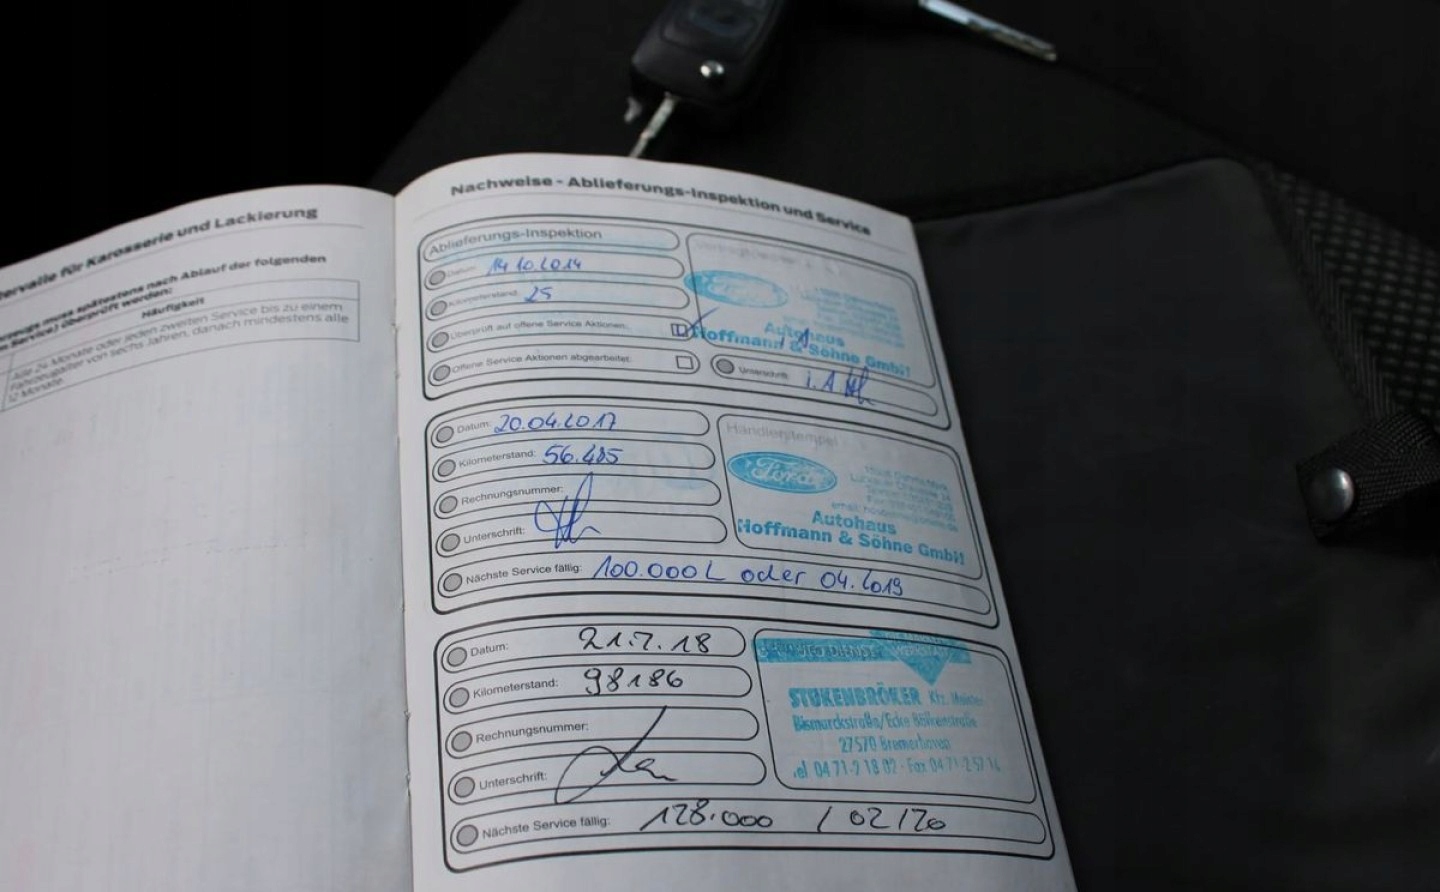 ervalle für Karosserie und Lackierung
muss spätestens nach Ablauf der folgenden
Service) überprüft werden:
Häufigkeit
Alle 24 Monate oder jeden zweiten Service bis zu einem
Fahrzeugalter von sechs Jahren, danach mindestens alle
12 Monate.
Nachweise - Ablieferungs-Inspektion und Service
Ablieferungs-Inspektion
Datum: 14.10.2014
Kilometerstand: 25
Überprüft auf offene Service Aktionen:
Offene Service Aktionen abgearbeitet:
Autohaus
Hoffmann & Söhne GmbH
Unterschrift: i. A
Datum: 20.04.2017
Kilometerstand: 56.485
Rechnungsnummer:
Unterschrift:
Nächste Service fällig: 100.000 L oder 04.2019
Händlerstempel
Ford
Autohaus
Hoffmann & Söhne GmbH
Datum: 21.7.18
Kilometerstand: 98186
Rechnungsnummer:
Unterschrift:
Nächste Service fällig: 128.000 / 02/20
STUKENBRÖKER Kfz. Meister
Bismarckstraße/Ecke Bölkenstraße
27570 Bremerhaven